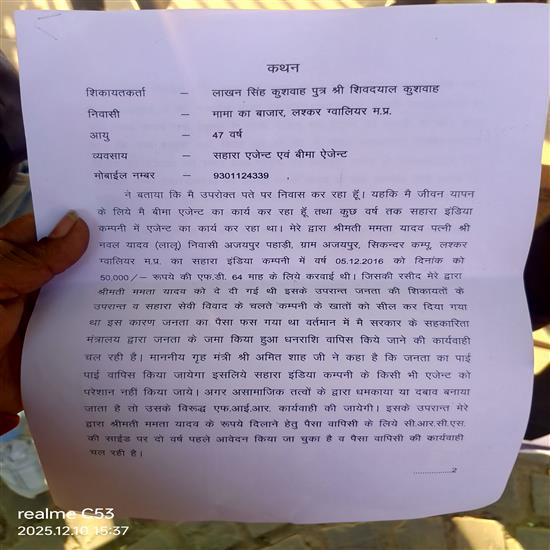 कथन
शिकायतकर्ता – लाखन सिंह कुशवाह पुत्र श्री शिवदयाल कुशवाह
निवासी – मामा का बाजार, लश्कर ग्वालियर म.प्र.
आयु – 47 वर्ष
व्यवसाय – सहारा एजेन्ट एवं बीमा ऐजेन्ट
मोबाईल नम्बर – 9301124339
ने बताया कि मै उपरोक्त पते पर निवास कर रहा हूँ। यहकि मै जीवन यापन
के लिये मै बीमा एजेन्ट का कार्य कर रहा हूँ तथा कुछ वर्ष तक सहारा इंडिया
कम्पनी में एजेन्ट का कार्य कर रहा था। मेरे द्वारा श्रीमती ममता यादव पत्नी श्री
नवल यादव (लालू) निवासी अजयपुर पहाड़ी, ग्राम अजयपुर, सिकन्दर कम्पू, लश्कर
ग्वालियर म.प्र. का सहारा इंडिया कम्पनी में वर्ष 05.12.2016 को दिनांक को
50,000/– रूपये की एफ.डी. 64 माह के लिये करवाई थी। जिसकी रसीद मेरे द्वारा
श्रीमती ममता यादव को दे दी गई थी इसके उपरान्त जनता की शिकायतों के
उपरान्त व सहारा सेवी विवाद के चलते कम्पनी के खातों को सील कर दिया गया
था इस कारण जनता का पैसा फस गया था वर्तमान में मै सरकार के सहकारिता
मंत्रालय द्वारा जनता के जमा किया हुआ धनराशि वापिस किये जाने की कार्यवाही
चल रही है। माननीय गृह मंत्री श्री अमित शाह जी ने कहा है कि जनता का पाई
पाई वापिस किया जायेगा इसलिये सहारा इंडिया कम्पनी के किसी भी एजेन्ट को
परेशान नहीं किया जाये। अगर असामाजिक तत्वों के द्वारा धमकाया या दबाव बनाया
जाता है तो उसके विरूद्ध एफ.आई.आर. कार्यवाही की जायेगी। इसके उपरान्त मेरे
द्वारा श्रीमती ममता यादव के रूपये दिलाने हेतु पैसा वापिसी के लिये सी.आर.सी.एस.
की साईड पर दो वर्ष पहले आवेदन किया जा चुका है व पैसा वापिसी की कार्यवाही
चल रही है।
..............2
realme C53
2025.12.10 15:37